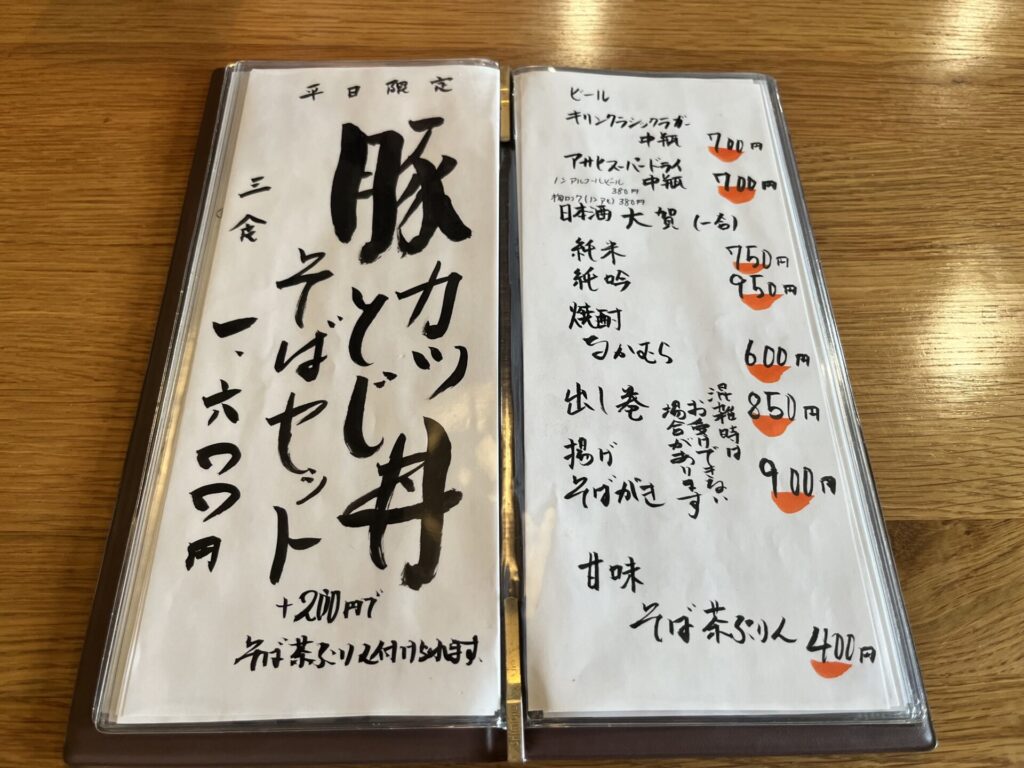 平日限定
豚カツとじ丼
そばセット
三食
一、六〇〇円
+200円で
そば茶ぷりん付けられます。
ビール
キリンクラシックラガー
中瓶 700円
アサヒスーパードライ
中瓶 700円
ノンアルコールビール
380円
梅ロック(ノンアル) 380円
日本酒 大賀 (一合)
純米 750円
純吟 950円
焼酎
なかむら 600円
出し巻 850円
揚げ
そばがき 900円
混雑時は
お受けできない
場合があります
甘味
そば茶ぷりん 400円